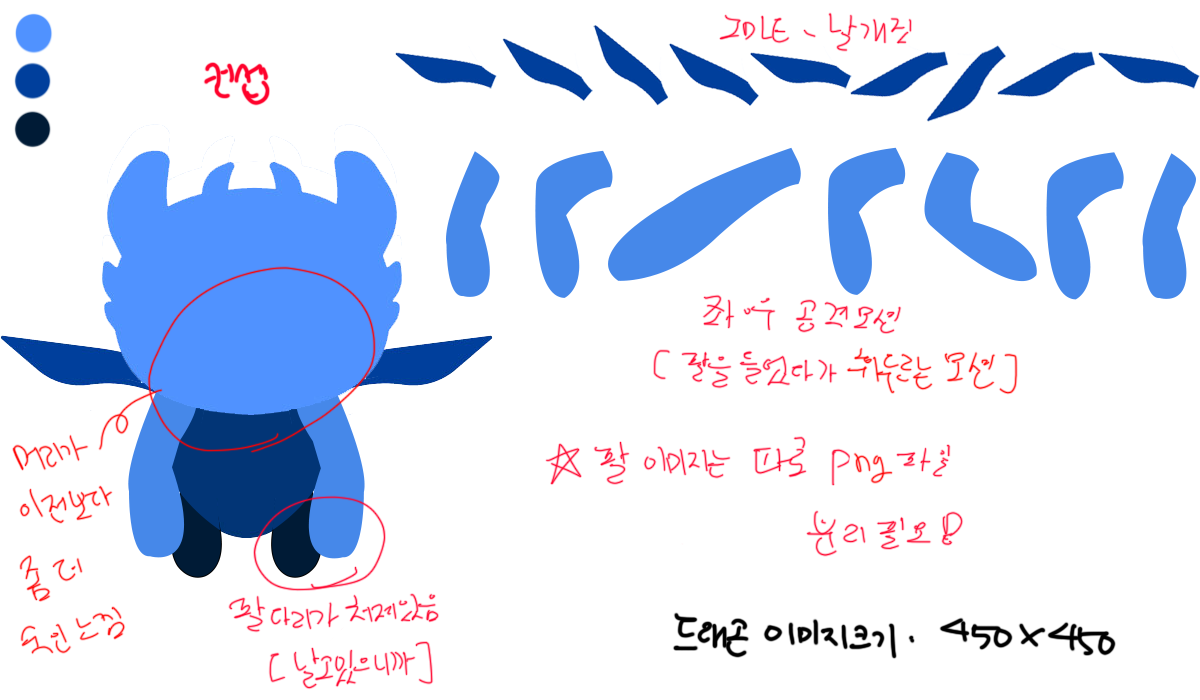 전면
IDLE、날개짓
좌우 공격모션
[팔을 들었다가 휘두르는 모션]
☆ 팔 이미지는 따로 png파일
분리 필요!
머리가
이전보다
좀 더
숙인느낌
팔다리가 쳐져있음
[날고있으니까]
드래곤 이미지크기. 450×450